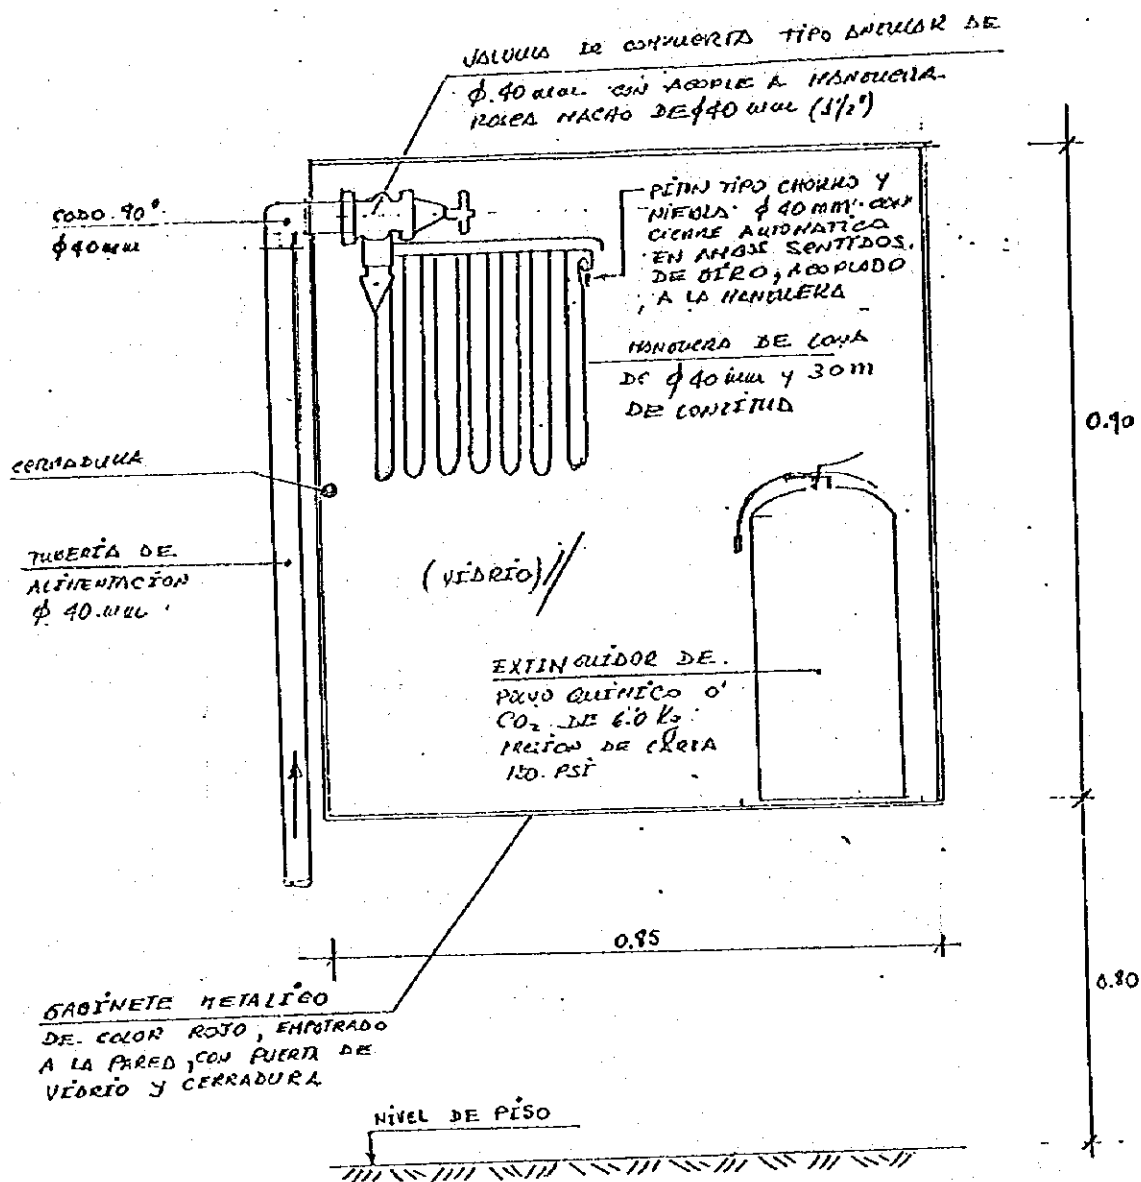 VALVULA DE COMPUERTA TIPO ANGULAR DE
ϕ.40 mm. CON ACOPLE A MANGUERA
ROSCA MACHO DE ϕ40 mm (1½")
CODO.90°
ϕ40mm
PITON TIPO CHORRO Y
NIEBLA ϕ 40 MM. CON
CIERRE AUTOMATICO
EN AMBOS SENTIDOS.
DE GIRO, ACOPLADO
A LA MANGUERA
MANGUERA DE LONA
DE ϕ 40 mm y 30 m
DE LONGITUD
0.90
CERRADURA
TUBERÍA DE
ALIMENTACION
ϕ 40.mm
(VIDRIO)
EXTINGUIDOR DE
POLVO QUIMICO O'
CO₂ DE 6.0 Kg
PRESION DE CARGA
PSI
0.85
0.80
GABINETE METALICO
DE COLOR ROJO, EMPOTRADO
A LA PARED, CON PUERTA DE
VIDRIO Y CERRADURA
NIVEL DE PISO